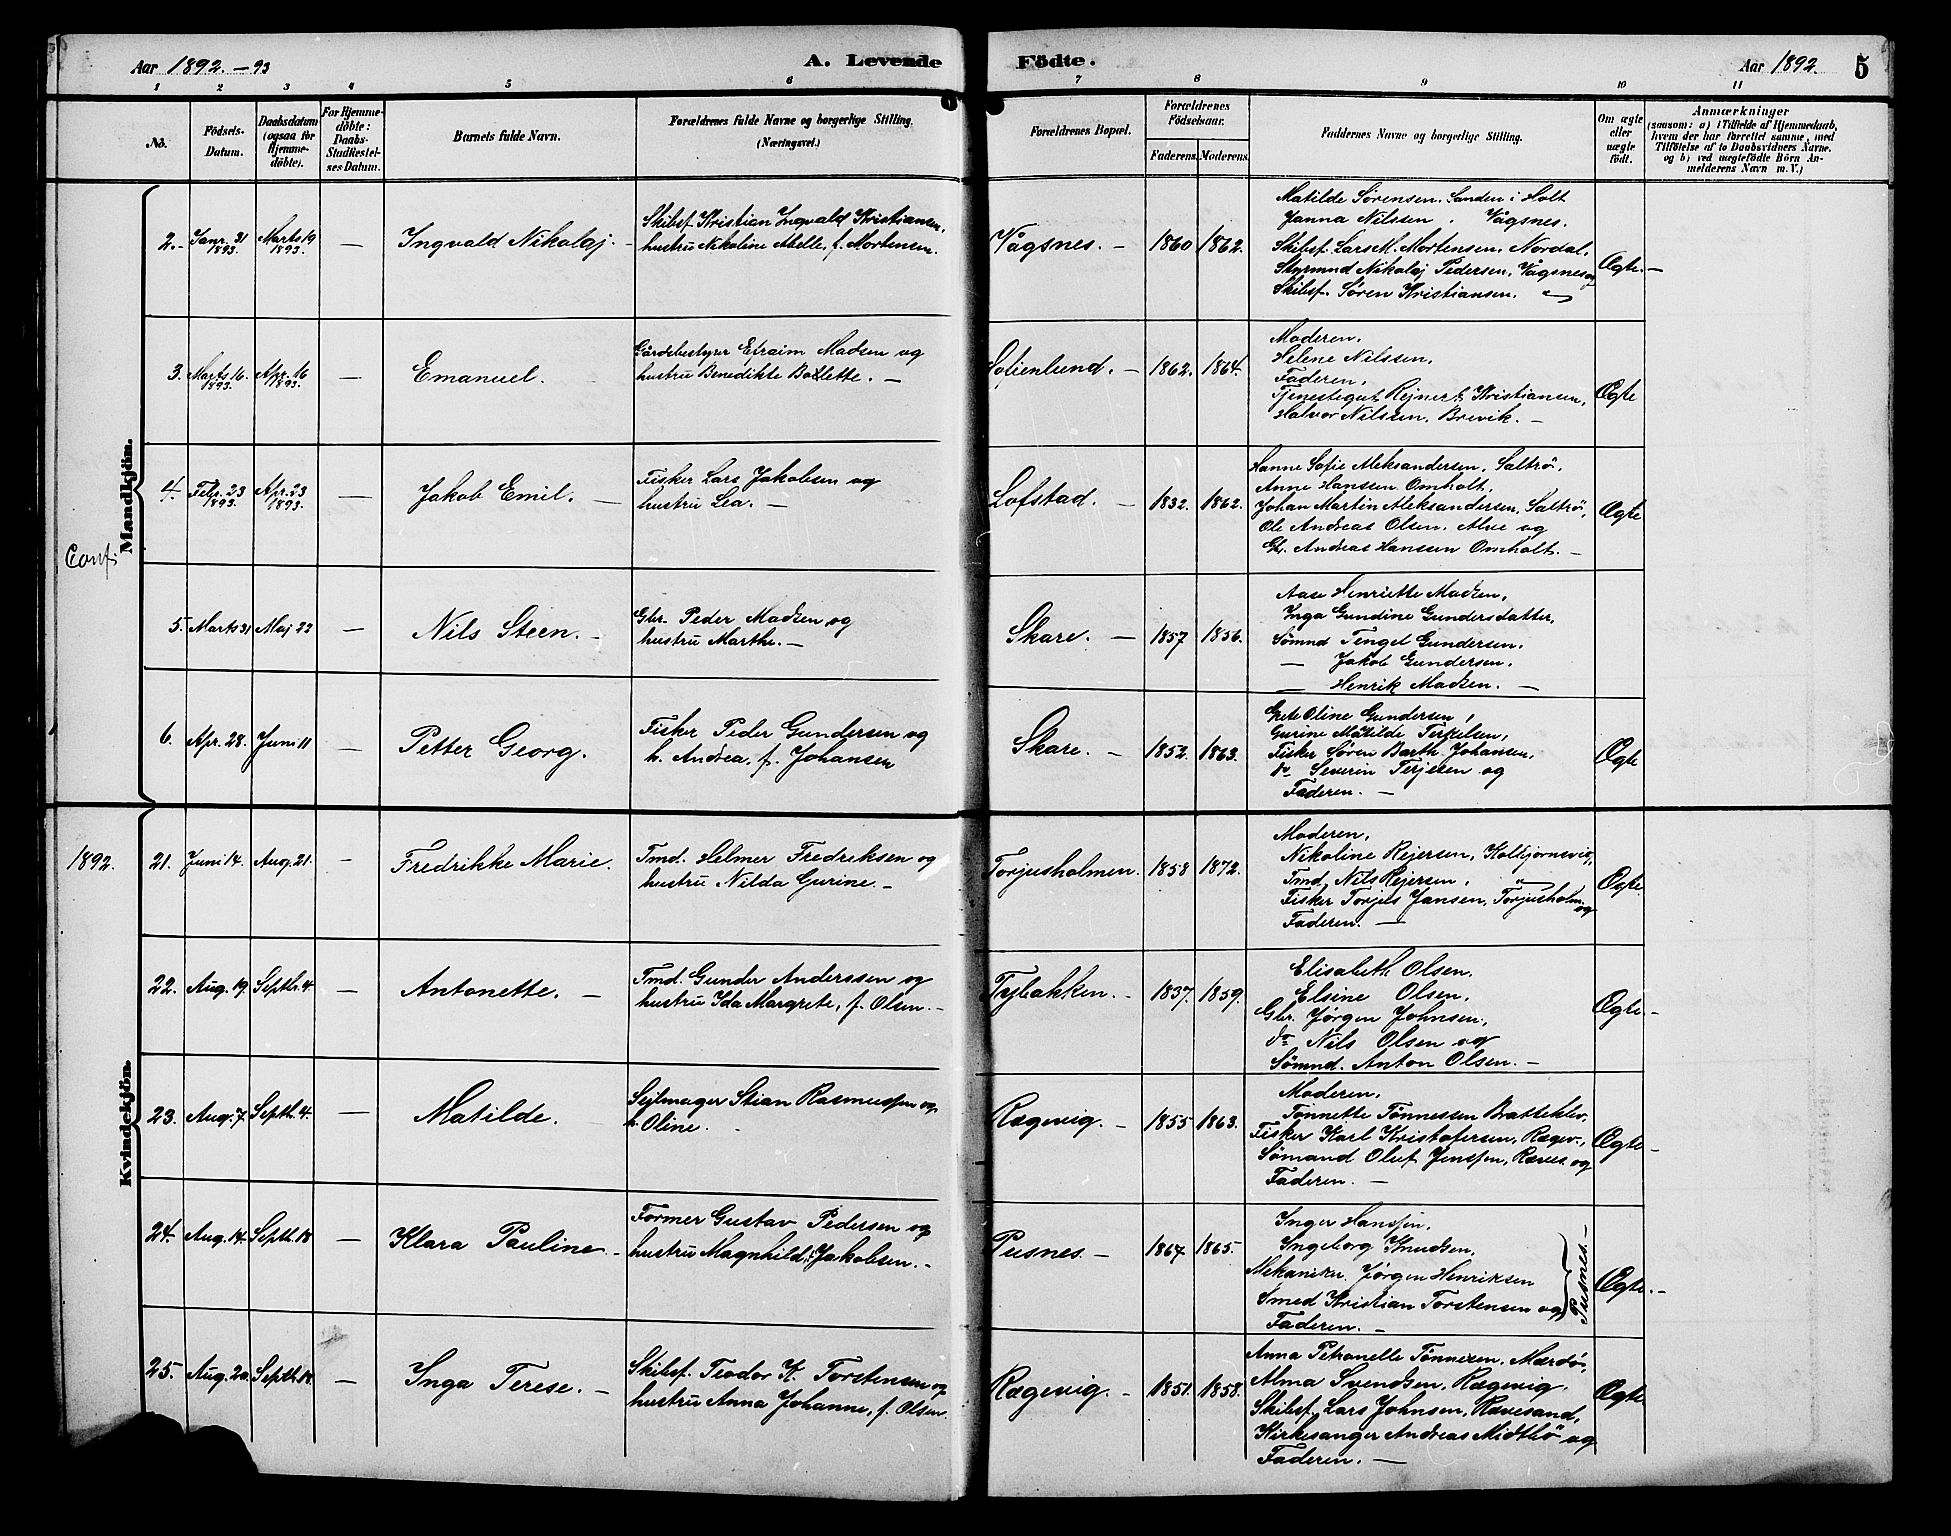 Aar 1892.-93
A. Levende Födte.
Aar 1892.
5
1 2 3 4 5 6 7 8 9 10 11
No.
Födsels-Datum.
Daabsdatum (ogsaa for Hjemmedöbte).
For Hjemmedöbte: Daabs-Stadfæstelses Datum.
Barnets fulde Navn.
Forældrenes fulde Navne og borgerlige Stilling. (Næringsvei.)
Forældrenes Bopæl.
Forældrenes Födselsaar.
Faderens. Moderens.
Faddernes Navne og borgerlige Stilling.
Om ægte eller uægte födt.
Anmærkninger
(saasom: a) i Tilfælde af Hjemmedaab, hvem der har forrettet samme, med Tilföielse af to Daabsvidners Navne. og b) ved uægtefödte Börn Anmelderens Navn m.V.)
Mandkjön.
Conf.
2.- Janr. 31 1893. Marts 19 1893. — Ingvald Nikolaj. -
Skibsf. Kristian Ingvald Kristiansen,
hustru Nikoline Abelle, f. Mortensen.
Vågsnes. - 1860 1862.
Matilde Sørensen. Sanden i Holt
Janna Nilssen. Vågsnes.
Skibsf. Lars M. Mortensen, Nordal.
Styrmnd Nikolaj Pedersen, Vågsnes og
Skibsf. Søren Kristiansen.
Ægte. —
3. Marts 16. 1893. Apr. 16 1893. — Emanuel.
Gårdsbestyrer Efraim Madsen og
hustru Benedikte Bollette. —
Sofienlund. - 1862. 1864.
Moderen.
Helene Nilssen.
Faderen.
Tjenestegut Rejnert Kristiansen,
Halvor Nilssen, Brevik. —
Ægte
4. Febr. 23 1893. Apr. 23 1893. — Jakob Emil. —
Fisker Lars Jakobsen og
hustru Lea. —
Lofstad. — 1832. 1862.
Hanne Sofie Aleksandersen, Saltrø.
Anne Hanssen Omholt.
Johan Martin Aleksandersen. Saltrø,
Ole Andreas Olsen, Alve og
Gbr. Andreas Hanssen Omholt. —
Ægte
5. Marts 31 Maj 22 — Nils Steen. -
Gbr. Peder Madsen og
hustru Marthe. —
Skare. — 1857 1856.
Aase Henriette Madsen,
Inga Gundine Gundersdatter,
Sømnd Tengel Gundersen.
— Jakob Gundersen.
— Henrik Madsen. —
6. Apr. 28. Juni 11 — Petter Georg.
Fisker Peder Gundersen og
h. Andrea, f. Johansen
Skare. - 1852. 1863.
Grete Oline Gundersen,
Gurine Matilde Terkelsen,
Fisker Søren Barth. Johansen,
do Severin Terjesen og
Faderen. —
Ægte
Kvindekjön.
1892. 21. Juni 14. Aug. 21. — Fredrikke Marie.
Tmd. Helmer Fredriksen og
hustru Nilda Gurine. -
Torjusholmen. 1858 1872.
Moderen,
Nikoline Rejersen, Kolbjornsvig,
Tmd. Nils Rejersen,
Fisker Torjels Jansen, Torjusholm. og
Faderen. —
Ægte.
22. Aug. 19. Septb. 4. — Antonette. —
Tmd. Gunder Anderssen og
hustru Ida Margrete, f. Olsen. -
Tybakken. - 1837. 1859.
Elisabeth Olsen.
Elsine Olsen.
Gbr. Jørgen Johnsen.
do Nils Olsen og
Sømnd. Anton Olsen. —
Ægte. -
23. Aug. 7. Septb. 4. — Matilde.
Sejlmager Stian Rasmussen og
h. Oline.
Rægevig. - 1855 1863.
Moderen,
Tønnette Tønnessen Bratteklev,
Fisker Karl Kristofersen, Rægev.,
Sømand Oluf Jenssen, Ræves. og
Faderen. —
Ægte. -
24. Aug. 14. Septb. 18 — Klara Pauline. -
Former Gustav Pedersen og
hustru Magnhild, Jakobsen. -
Pusnes. - 1867 1865.
Inger Hanssen.
Ingeborg Knudsen,
Mekaniker Jørgen Henriksen
Smed Kristian Torstensen og
Faderen. —
Pusnes. —
Ægte. -
25. Aug. 20. Septb. 18. — Inga Terese. —
Skibsf. Teodor K. Torstensen og
hustru Anna Johanne, f. Olsen.
Rægevig. - 1851. 1858.
Anna Petronelle Tønnesen, Mærdø,
Alma Svendsen, Rægevig.
Skibsf. Lars Johnsen, Rævesand,
Kirkesanger Andreas Midtbø og
Faderen. —
Ægte